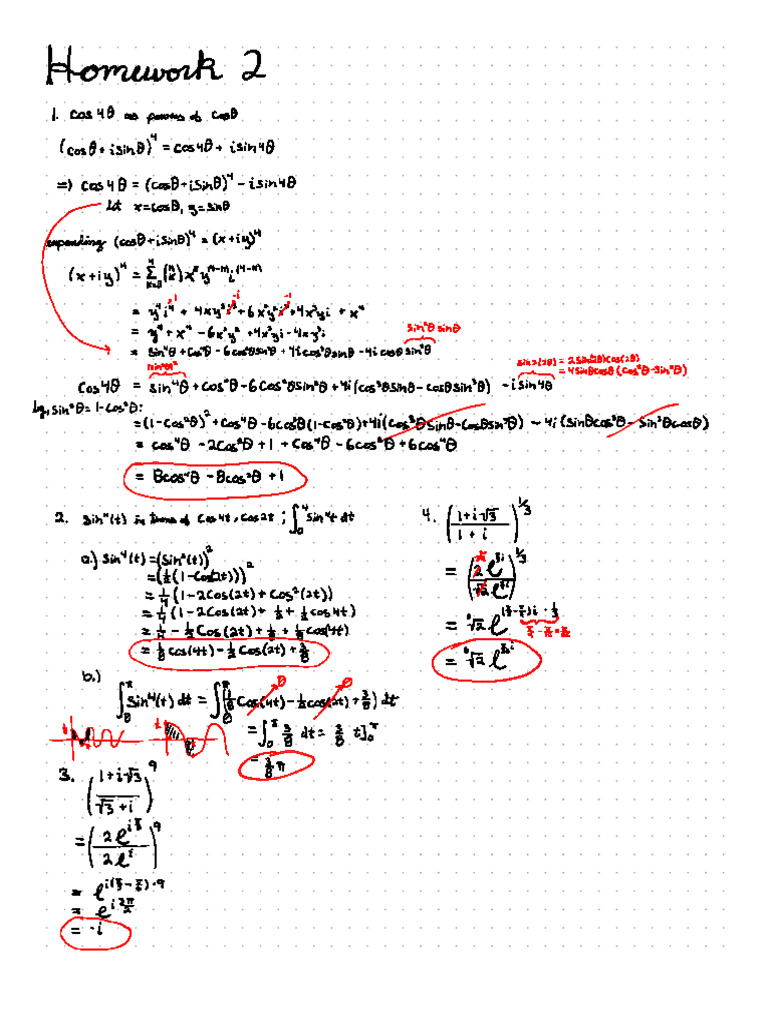 Homework 2
1. cos 4θ as powers of cosθ
(cosθ + isinθ)⁴ = cos4θ + isin4θ
=> cos4θ = (cosθ+isinθ)⁴ - isin4θ
let x=cosθ, y=sinθ
expanding (cosθ+isinθ)⁴ = (x+iy)⁴
= y⁴ + x⁴ - 6x²y² + 4x³yi - 4xy³i
sin²θ sinθ
= sin⁴θ + cos⁴θ - 6cos²θsin²θ + 4icos³θsinθ - 4i cosθ sin³θ
(sin²θ)²
sin2(2θ) = 2sin(2θ)cos(2θ)
= 4sinθcosθ(cos²θ-sin²θ)
cos4θ = sin⁴θ + cos⁴θ - 6cos²θsin²θ + 4i(cos³θsinθ - cosθsin³θ) - isin4θ
by, sin²θ = 1-cos²θ:
= (1-cos²θ)² + cos⁴θ - 6cos²θ(1-cos²θ) + 4i(cos³θsinθ - cosθsin³θ) - 4i(sinθcos³θ - sin³θcosθ)
= cos⁴θ - 2cos²θ + 1 + cos⁴θ - 6cos²θ + 6cos⁴θ
= 8cos⁴θ - 8cos²θ + 1
2. sin⁴(t) in terms of cos4t, cos2t ;
a.) sin⁴(t) = (sin²(t))²
= (½(1-cos(2t)))²
= ¼(1-2cos(2t) + cos²(2t))
= ¼(1-2cos(2t) + ½ + ½cos4t)
= ¼ - ½cos(2t) + ⅛ + ⅛cos(4t)
= ⅛cos(4t) - ½cos(2t) + ⅜
b.)
∫₀^π sin⁴(t) dt = ∫₀^π (⅛cos(4t) - ½cos(2t) + ⅜) dt
0 0
= ∫₀^π ⅜ dt = ⅜ t]₀^π
= ⅜π
3. ((1+i√3)/(√3+i))⁹
= e^(i(π/3-π/6)·9)
= e^(i3π/2)
= -i
4. ((1+i√3)/(1+i))^(1/3)